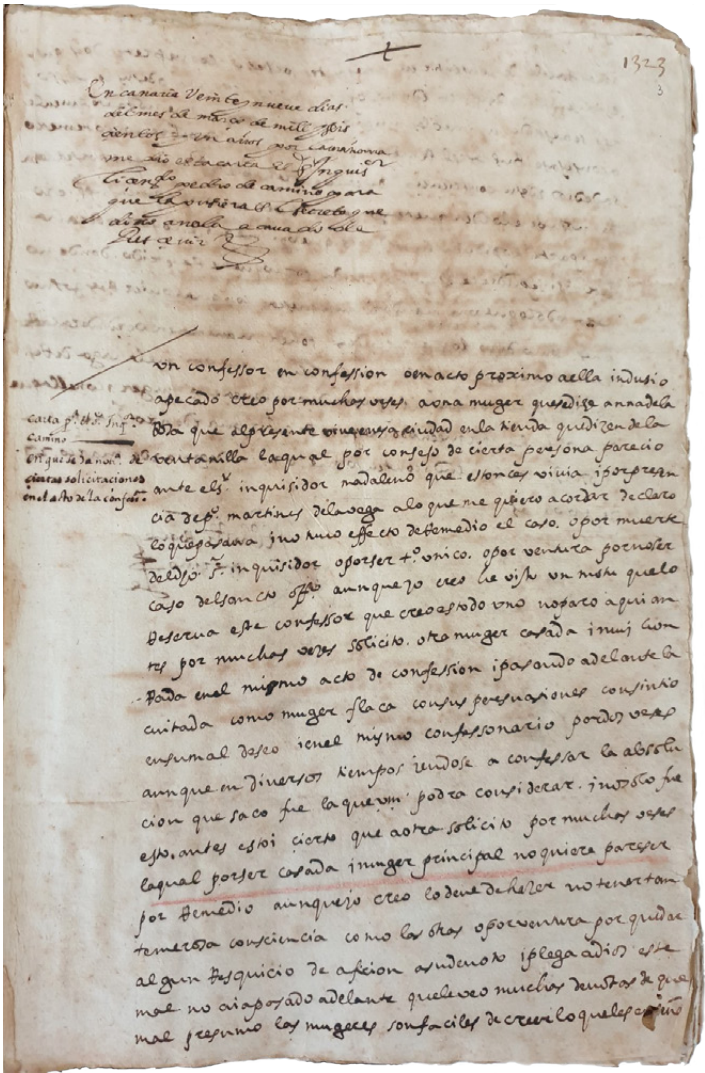 1323
3
En canaria Veinte y nueve dias
del mes de março de mill y seis
cientos y un años por la mañana
me dio esta carta el Sr Inquisor
licendo pedro de camino para
que la pusiera en el secreto que
vn confessor en confession o en acto proximo a ella indusio
a pecado creo por muchas veses. a vna muger que se dise anna de la
Rosa que al presente vive en esta ciudad en la tienda que dizen de la
ventanilla la qual por consejo de cierta persona parecio
ante el sr. inquisidor madaleno que estonces vivia i por presen
cia de po. martines de la vega a lo que me quiero acordar declaro
lo que pasava, i no tuvo effecto de Remedio el caso. o por muerte
del dho sr. inquisidor o por ser to. vnico. o por ventura por no ser
caso del sancto offo. aunque jo creo he visto un motu que lo
Reserva este confessor que creo es todo vno no paro aqui an
tes por muchas veses solicito. otra muger casada i mui hon
Rada en el mismo acto de confession i pasando adelante la
cuitada como muger flaca con sus persuasiones consintio
en su mal deseo i en el mismo confessonario por dos veses
aunque en diversos tiempos iendose a confessar la absolu
cion que saco fue la que vm podra considerar. i no solo fue
esto. antes estoi cierto que a otra solicito por muchas veses
la qual por ser casada i muger principal no quiere pareser
por Remedio aunque jo creo lo deve de hazer no tener tan
temerosa consciencia como las otras o por ventura por quedar
algun Resquicio de aficion a su devoto i plega a dios este
mal no aia pasado adelante que le veo muchas devotas de que
mal presumo las mugeres son faciles de creer i lo que les
carta po. el sr. Inqor.
camino
en que se da nota. de
ciertas solicitaciones
en el acto de la confeon.